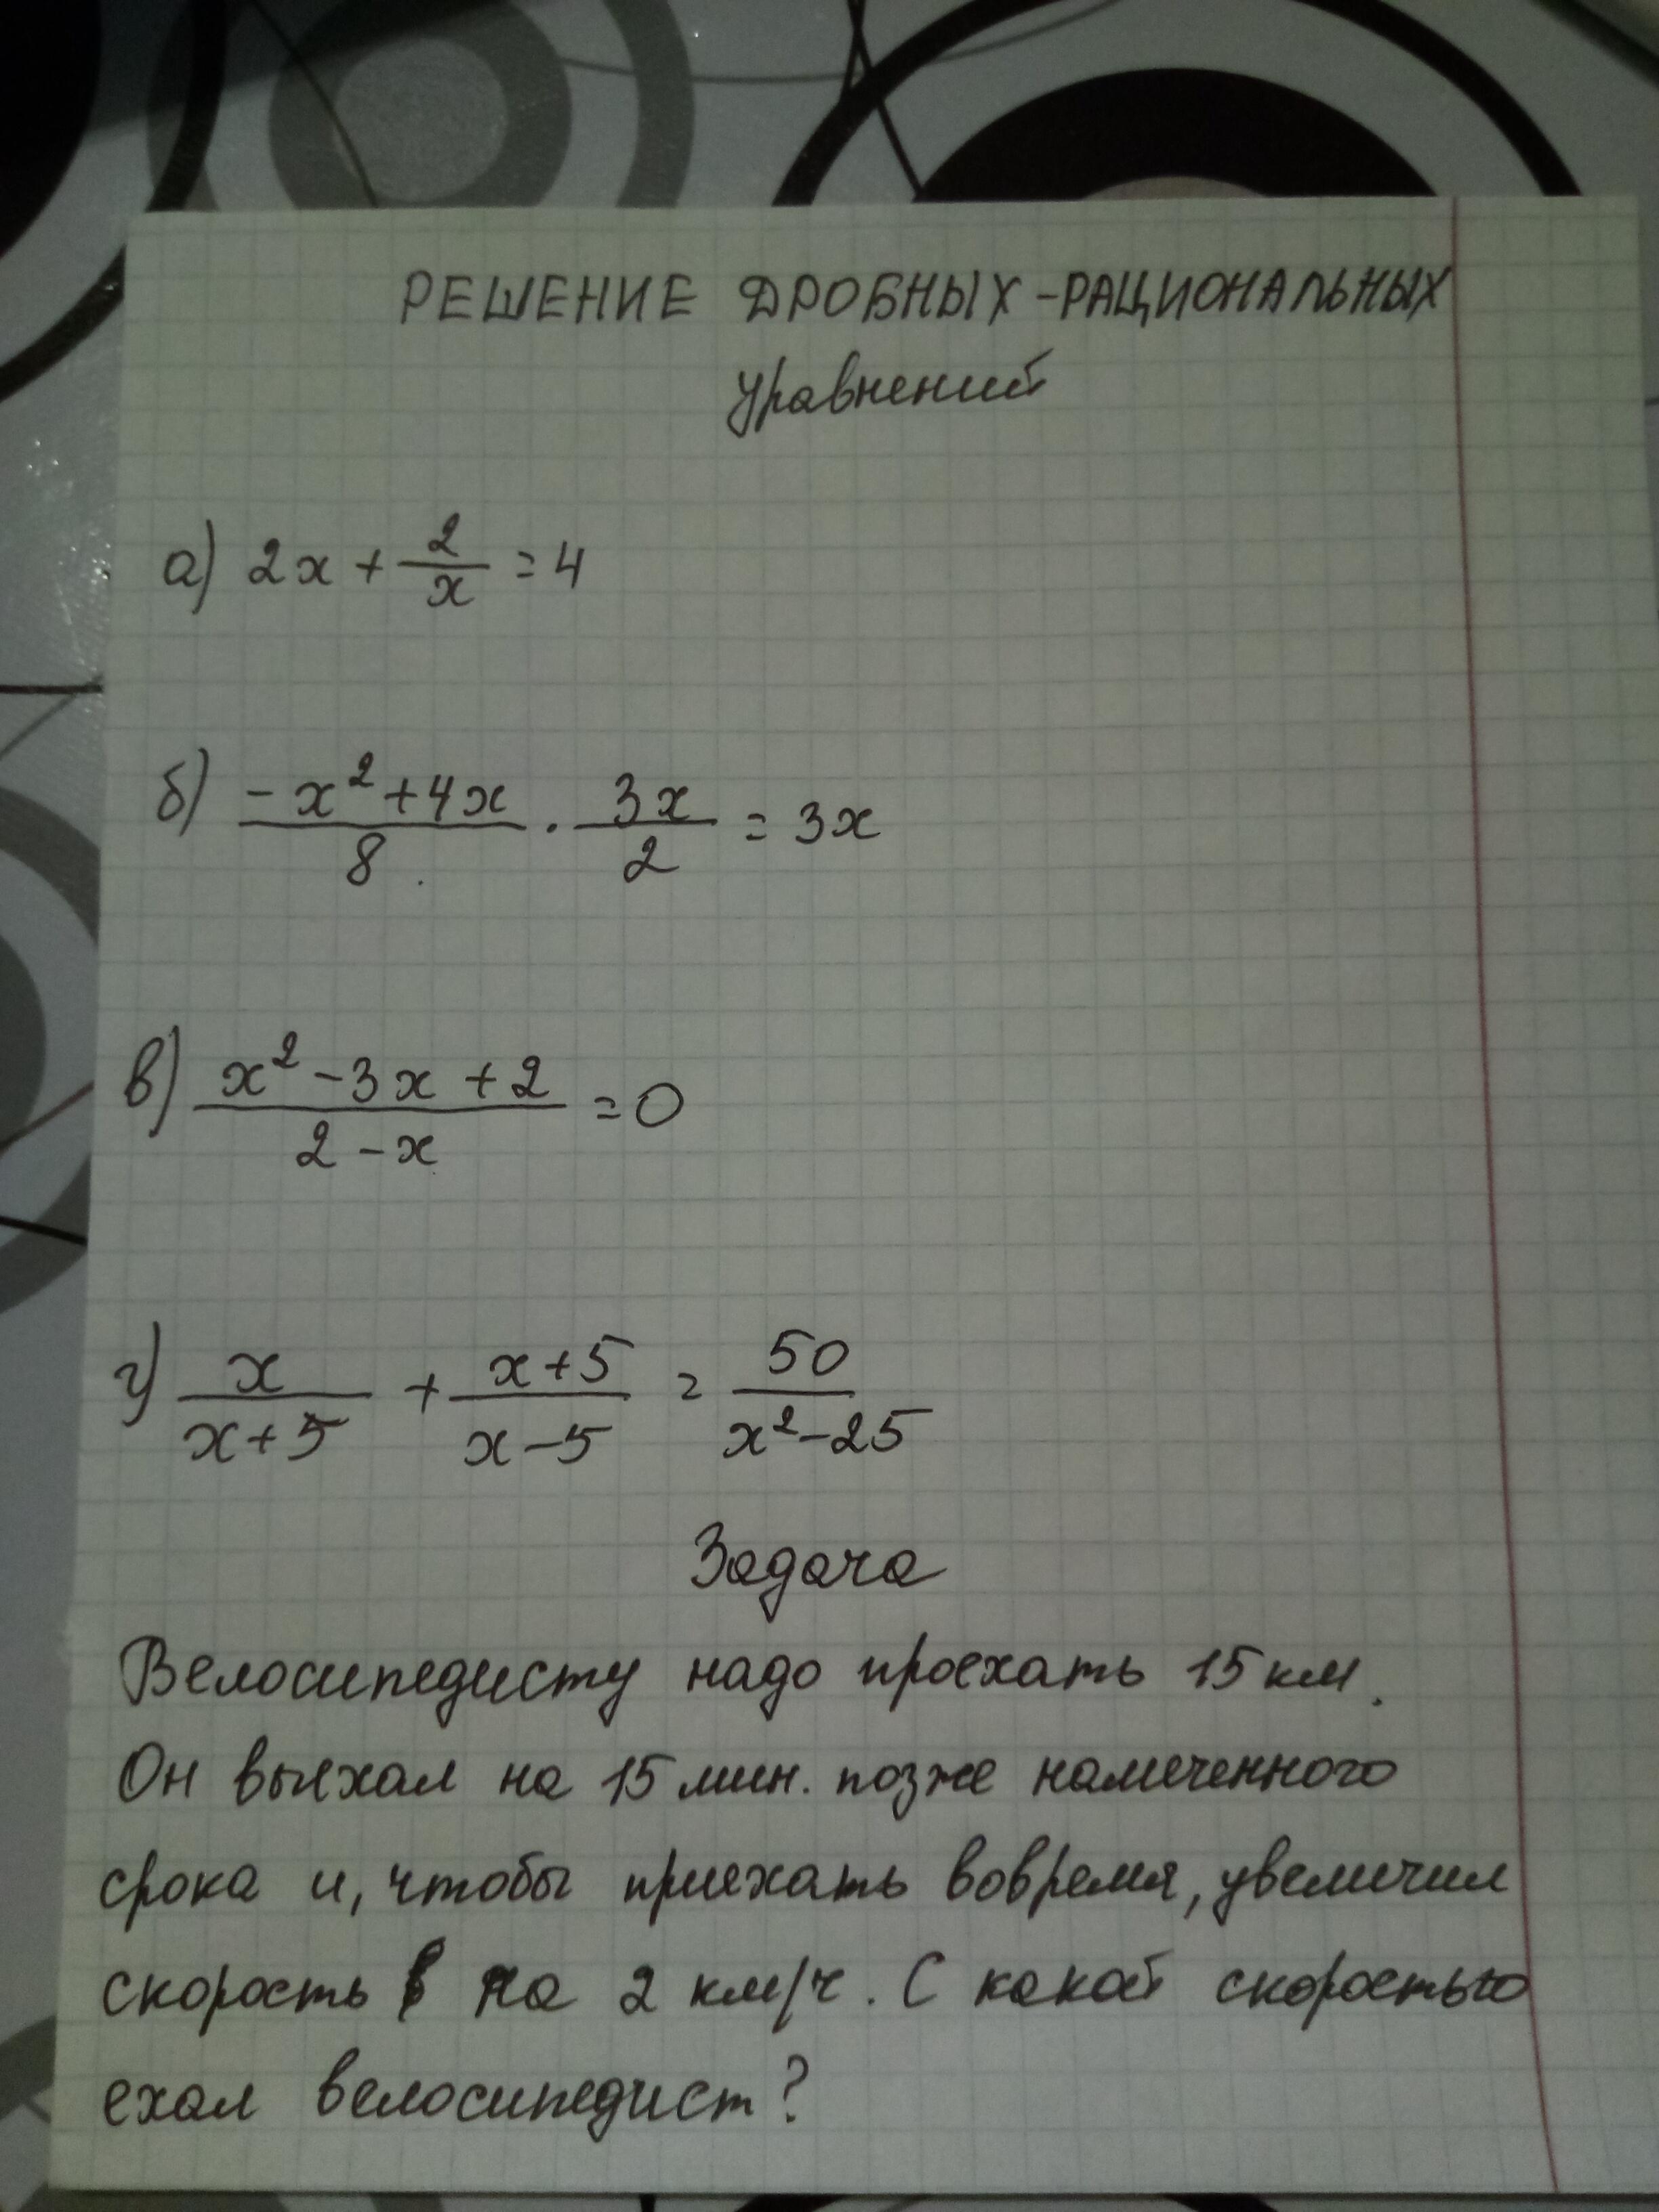 РЕШЕНИЕ ДРОБНЫХ-РАЦИОНАЛЬНЫХ
уравнений
а) 2x + 2/x = 4
б) (-x² + 4x)/8 · 3x/2 = 3x
в) (x² - 3x + 2)/(2 - x) = 0
г) x/(x+5) + (x+5)/(x-5) = 50/(x² - 25)
Задача
Велосипедисту надо проехать 15 км.
Он выехал на 15 мин. позже намеченного
срока и, чтобы приехать вовремя, увеличил
скорость на 2 км/ч. С какой скоростью
ехал велосипедист?